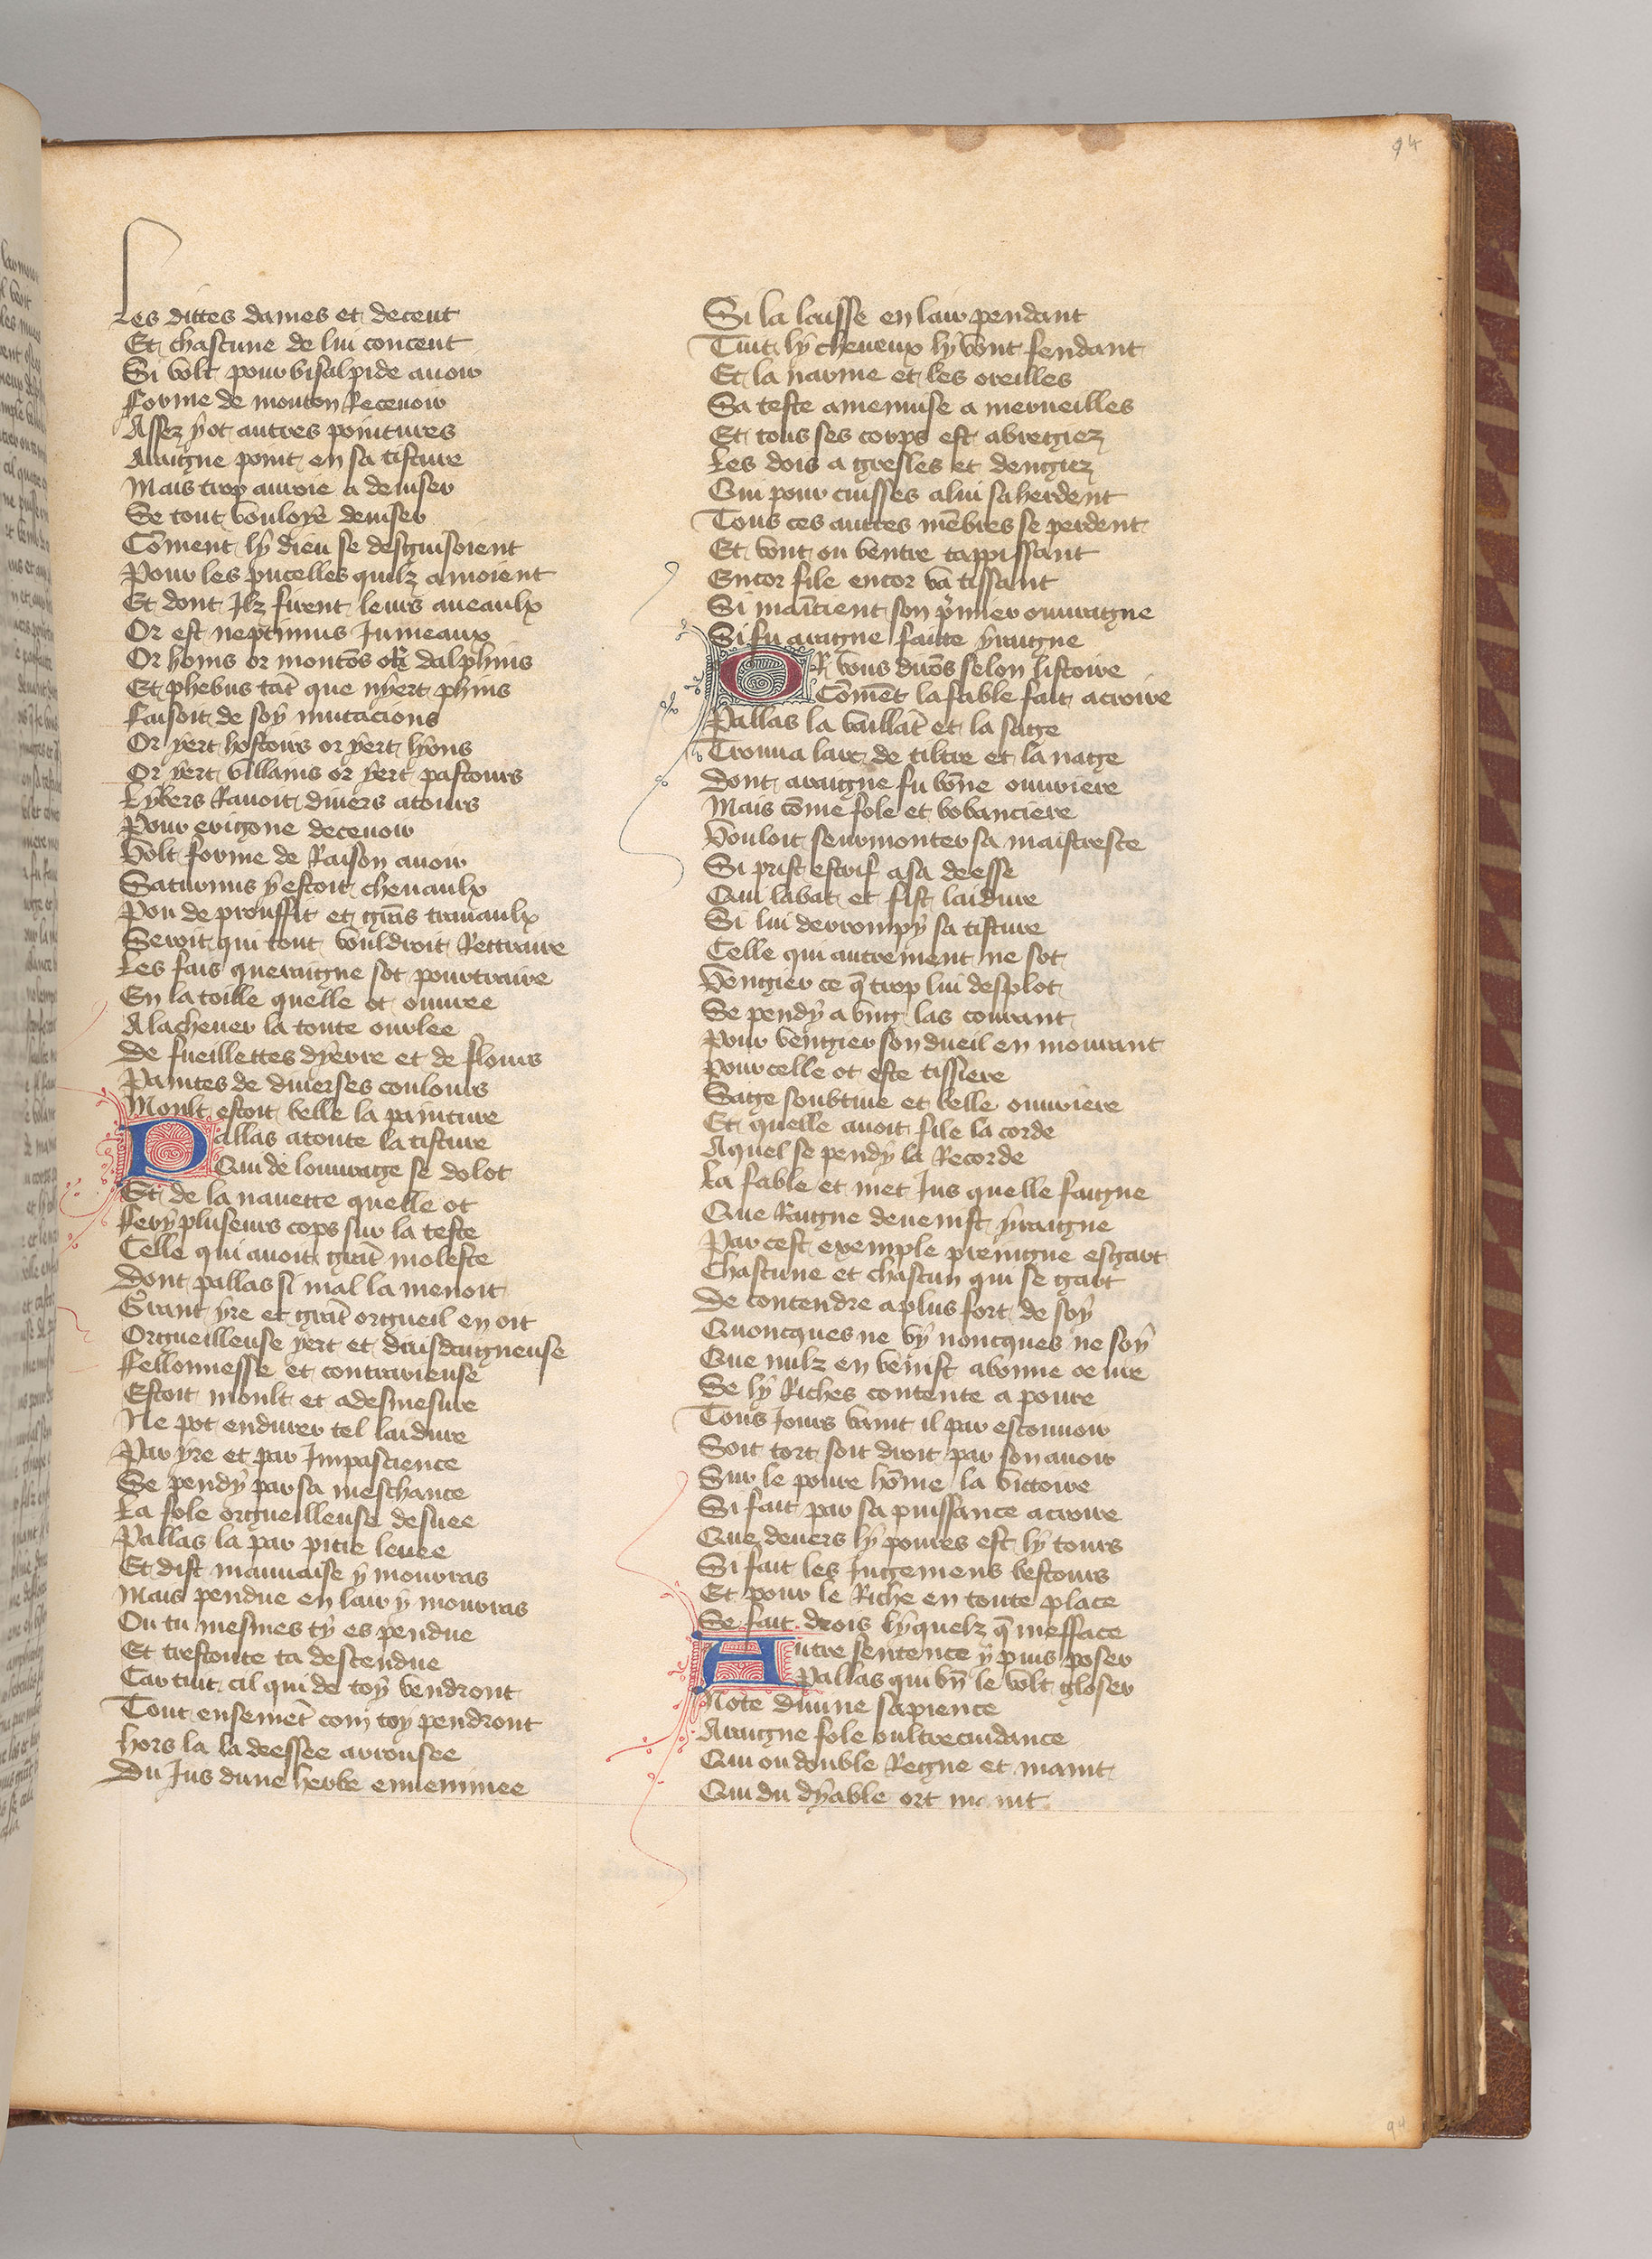 94
Les dittes dames et deceut
Et chascune de lui conceut
Si volt pour bisalpide auoir
Forme de mouton Receuoir
Assez y ot autres pointures
Araigne point en sa tisture
Mais trop auroie a deuiser
Se tout vouloye deuiser
Cõment ly dieu se desguisoient
Pour les pucelles quilz amoient
Et dont Ilz firent leurs aueaulx
Or est neptunus Jumeaux
Or homs or moutõs or dalphins
Et phebus tãt que nyert phins
Faisoit de soy mutacions
Or yert hostours or yert lyons
Or yert villains or yert pastours
Lybers Rauoit diuers atours
Pour erigone deceuoir
Volt forme de Raisin auoir
Saturnus y estoit cheuaulx
Pou de prouffit et grãs trauaulx
Seroit qui tout vouldroit Rettraire
Les fais queraigne sot pourtraire
En la toille quelle ot ouuree
A lacheuer la toute ourlee
De fueillettes dyerre et de flours
Paintes de diuerses coulours
Moult estoit belle la painture
Pallas atoute la tisture
Qui de louurage se dolot
Et de la nauette quelle ot
Fery pluseurs cops sur la teste
Celle qui auoit grãt moleste
Dont pallas si mal la menoit
Grant yre et grãt orgueil en oit
Orgueilleuse yert et desdaigneuse
Fellonnesse et contrarieuse
Estoit moult et a desmesure
Ne pot endurer tel laidure
Par yre et par Impascience
Se pendy par sa meschance
La fole orgueilleuse desuee
Pallas la par pitie leuee
Et dist mauuaise y mourras
Mais pendue en lair y mourras
Ou tu mesmes ty es pendue
Et trestoute ta descendue
Car tuit cil qui de toy vendront
Tout ensemẽt com toy pendront
Hors la la deessee arrousee
Du Jus dune herbe enuenimee
Si la laisse en lair pendant
Tuit ly cheueux ly vont fendant
Et la narine et les oreilles
Sa teste amenuise a merueilles
Et tous ses corps est abregiez
Les dois a gresles et deugiez
Qui pour cuisses a lui saherdent
Tous ces autres mẽbres se perdent
Et vont ou ventre tappissant
Encor file encor va tissant
Si maĩtient son p̃mier ouuragne
Si fu aragne faitte yraigne
OR vous diõs selon listoire
Cõmẽt la fable fait acroire
Pallas la vaillãt et la sage
Trouua lart de tiltre et la nage
Dont araigne fu bõne ouuriere
Mais cõme fole et bobanciere
Vouloit seurmonter sa maistresse
Si prist estrif a sa deesse
Qui labat et fist laidure
Si lui derrompy sa tisture
Celle qui autrement ne sot
Vengier ce q̃ trop lui desplot
Se pendy a vng las courant
Pour vengier son dueil en mourant
Pour celle ot este tissiere
Sage soubtiue et belle ouuriere
Et quelle auoit file la corde
A quel se pendy la Recorde
La fable et met Jus quelle faigne
Que Raigne deuenist yraigne
Par cest exemple preingne esgart
Chascune et chascun qui se gart
De contendre a plus fort de soy
Quoncques ne vy noncques ne soy
Que nulz en venist a bonne ceure
Se ly Riches contente a poure
Tous Jours vaint il par estouuoir
Soit tort soit droit par son auoir
Sur le poure hõme la victoire
Si fait par sa puissance acroire
Que deuers ly poures est ly tours
Si fait les Jugemens bestours
Et pour le Riche en toute place
Se fait drois ly quelz q̃ mefface
Autre sentence y puis poser
Pallas qui bñ le volt gloser
Note diuine sapience
Araigne fole oultrecuidance
Qui ou double Regne et maint
Qui du dyable ort
94